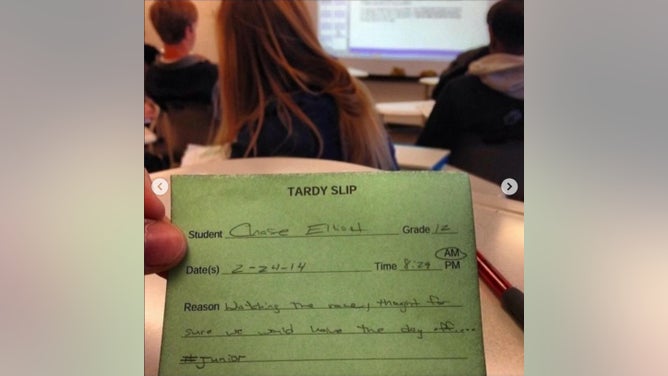 TARDY SLIP
Student Chase Elliott Grade 12
Date(s) 2-24-14 Time 8:29 AM PM
Reason Watching the race, thought for
sure we would have the day off....
#Junior